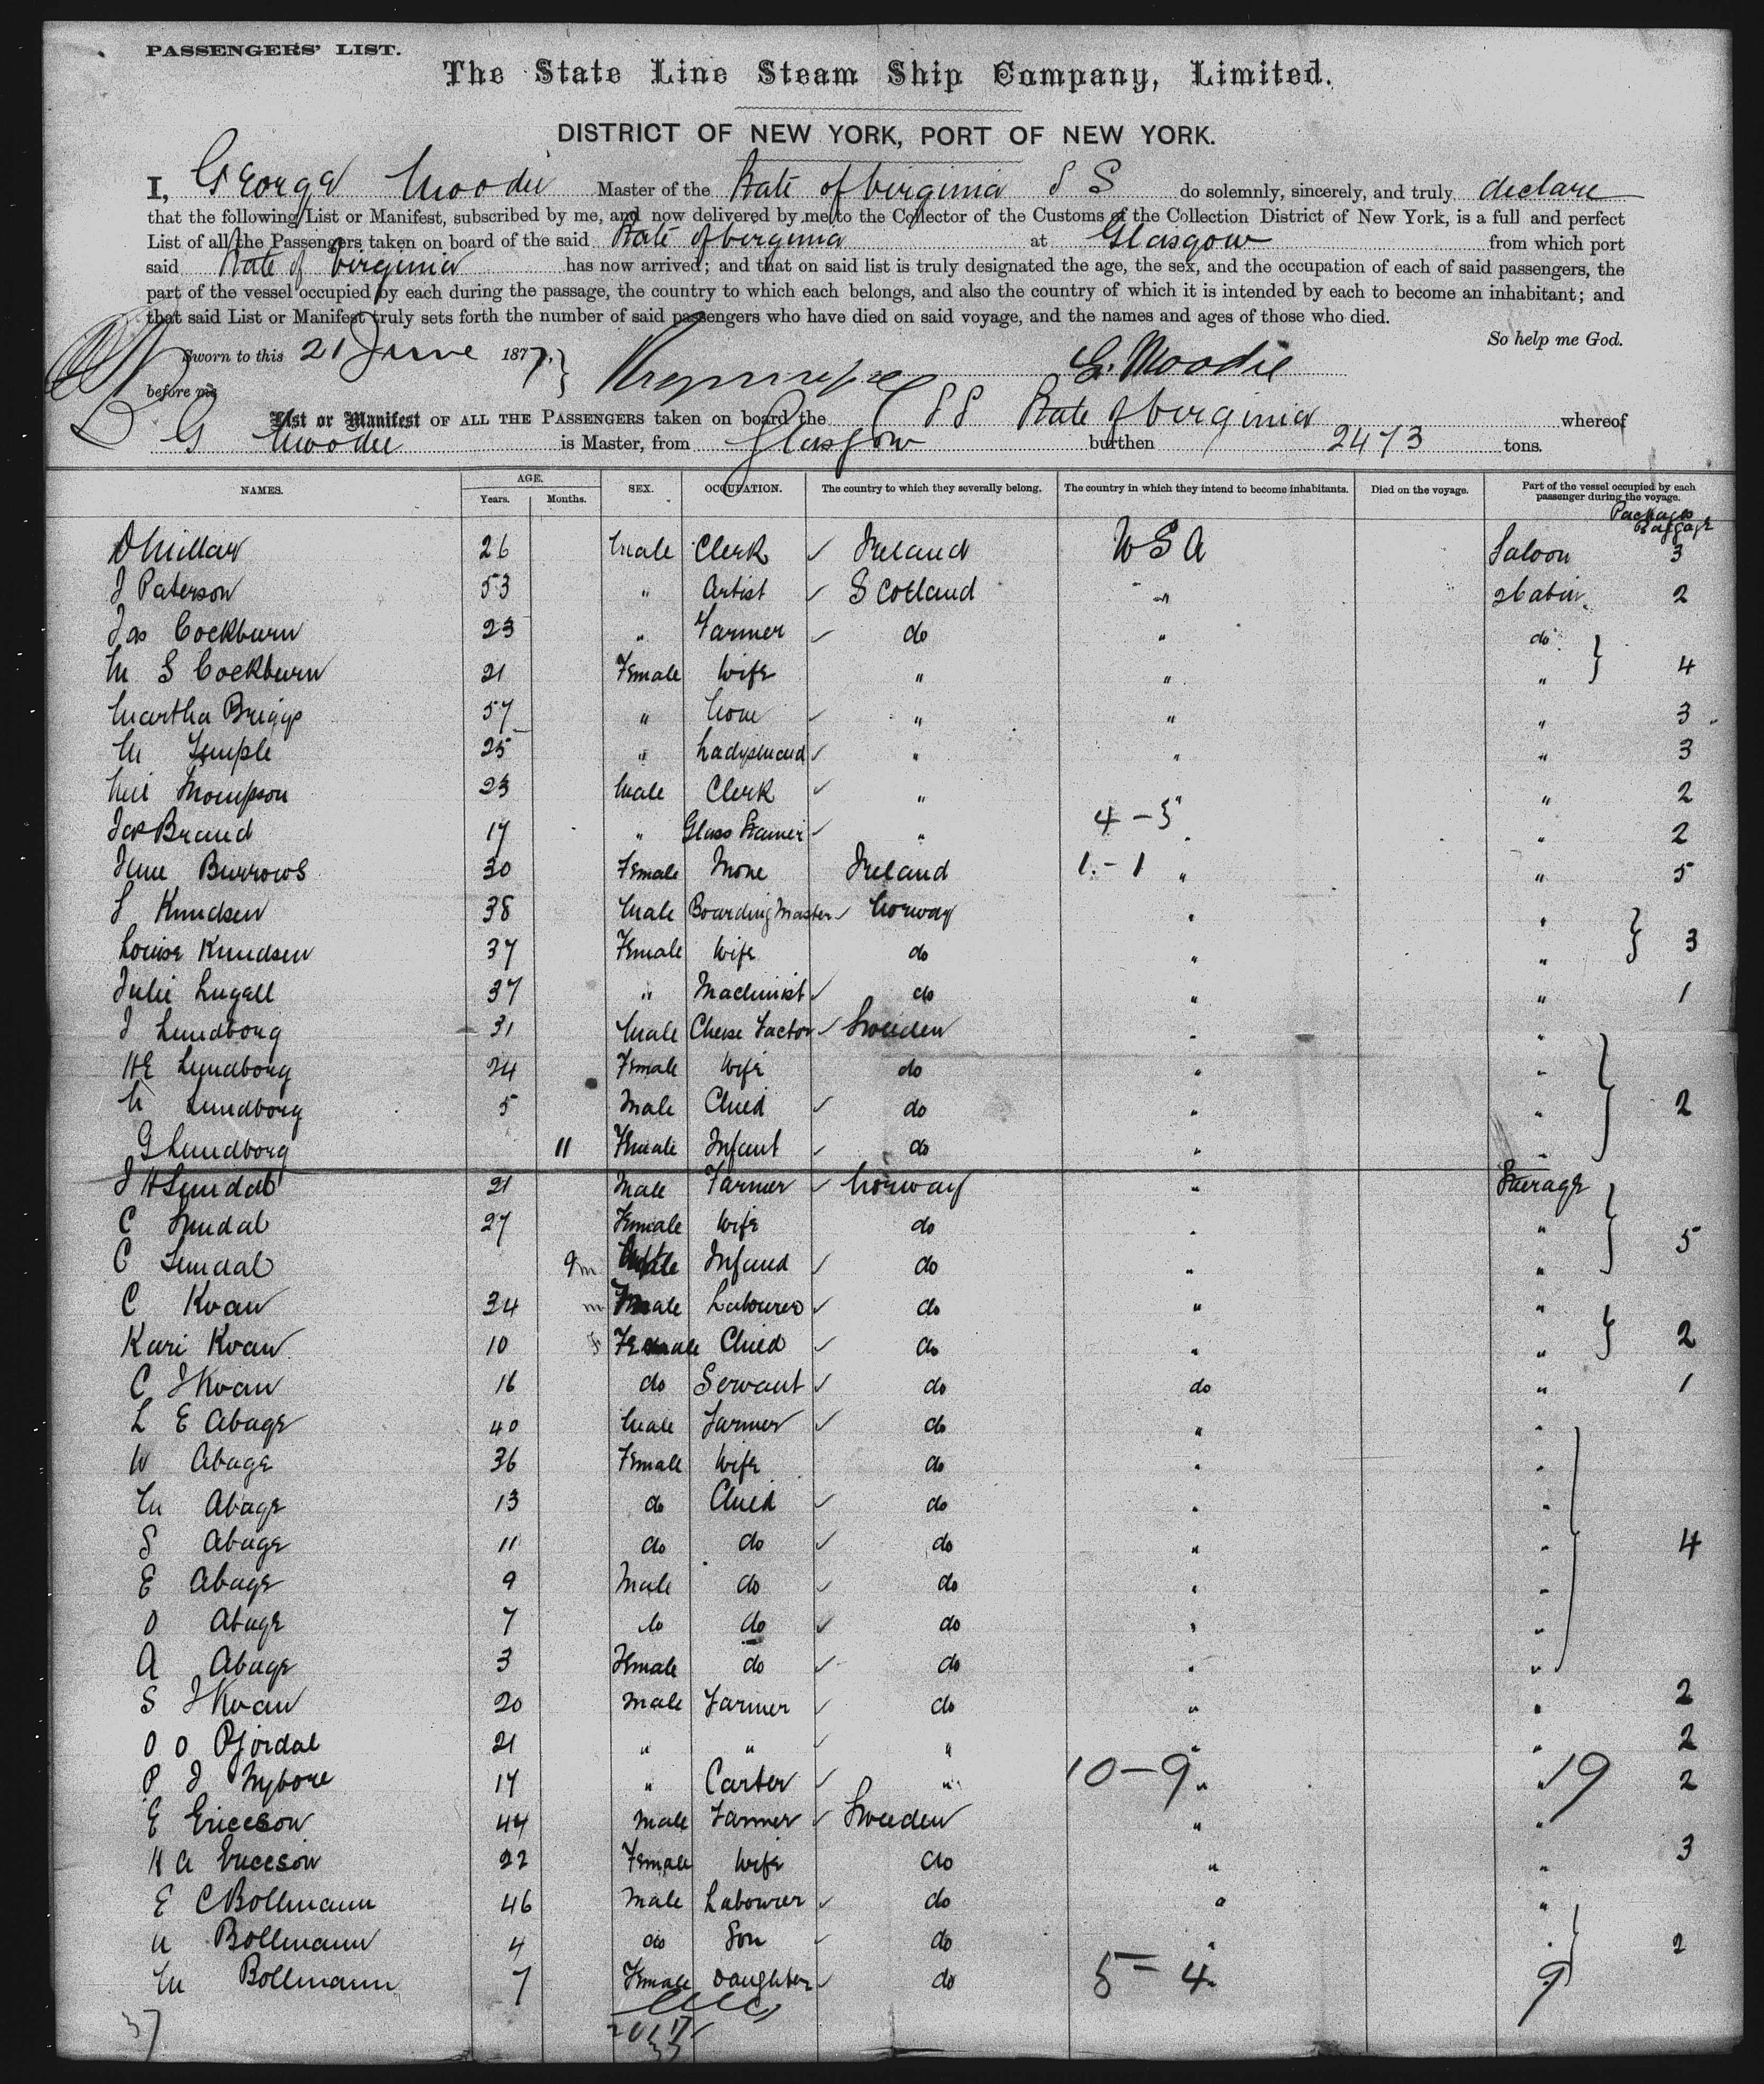 PASSENGERS' LIST.
The State Line Steam Ship Company, Limited.
DISTRICT OF NEW YORK, PORT OF NEW YORK.
I, George Moodie Master of the State of Virginia S S do solemnly, sincerely, and truly declare
that the following List or Manifest, subscribed by me, and now delivered by me to the Collector of the Customs of the Collection District of New York, is a full and perfect
List of all the Passengers taken on board of the said State of Virginia at Glasgow from which port
said State of Virginia has now arrived; and that on said list is truly designated the age, the sex, and the occupation of each of said passengers, the
part of the vessel occupied by each during the passage, the country to which each belongs, and also the country of which it is intended by each to become an inhabitant; and
that said List or Manifest truly sets forth the number of said passengers who have died on said voyage, and the names and ages of those who died.
So help me God.
Sworn to this 21 June 1877, G. Moodie
before me
List or Manifest OF ALL THE PASSENGERS taken on board the S S State of Virginia whereof
G Moodie is Master, from Glasgow burthen 2473 tons.
NAMES. AGE. Years. Months. SEX. OCCUPATION. The country to which they severally belong. The country in which they intend to become inhabitants. Died on the voyage. Part of the vessel occupied by each passenger during the voyage.
Packages Baggage
D Millar 26 Male Clerk Ireland U S A Saloon 3
J Paterson 53 " Artist Scotland " 2 Cabin 2
Jas Cockburn 23 " Farmer do " do
M S Cockburn 21 Female Wife " " " 4
Martha Briggs 57 " None " " " 3
M Temple 25 " Ladysmaid " " " 3
Neil Thompson 23 Male Clerk " " " 2
Jas Brand 17 " Glass Stainer " 4 - 3 " " 2
Jane Burrows 30 Female None Ireland 1 - 1 " " 5
S Knudsen 38 Male Boarding Master Norway " "
Louise Knudsen 37 Female Wife do " " 3
Julie Lugall 37 " Machinist do " " 1
J Lundborg 31 Male Cheese Factor Sweden " "
H E Lundborg 24 Female Wife do " "
N Lundborg 5 Male Child do " " 2
G Lundborg 11 Female Infant do " "
J H Lundal 21 Male Farmer Norway " Steerage
C Lundal 27 Female Wife do " " 5
C Lundal 9m Male Infant do " "
C Kvaw 34 m Male Labourer do " "
Kari Kvaw 10 f Female Child do " " 2
C J Kvaw 16 do Servant do do " 1
L E Abage 40 Male Farmer do " "
W Abage 36 Female Wife do " "
M Abage 13 do Child do " "
S Abage 11 do do do " " 4
E Abage 9 Male do do " "
O Abage 7 do do do " "
A Abage 3 Female do do " "
S J Kvaw 20 Male Farmer do " " 2
O O Pjordal 21 " " " " " 2
P J Nybore 17 " Carter " 10 - 9 " " 19 2
E Ericcson 44 Male Farmer Sweden " "
H A Ericcson 22 Female Wife do " " 3
E C Bollmann 46 Male Labourer do " "
N Bollmann 4 do Son do " " 2
M Bollmann 7 Female Daughter do 5 - 4 9
37